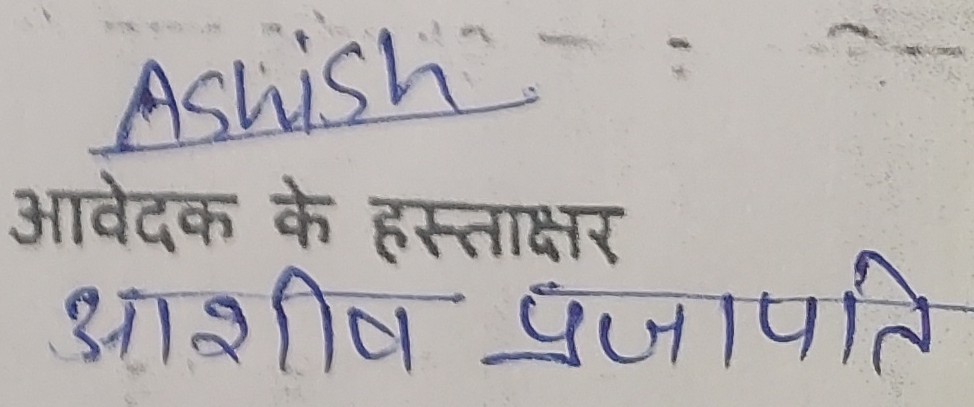 Ashish
आवेदक के हस्ताक्षर
आशीष प्रजापति